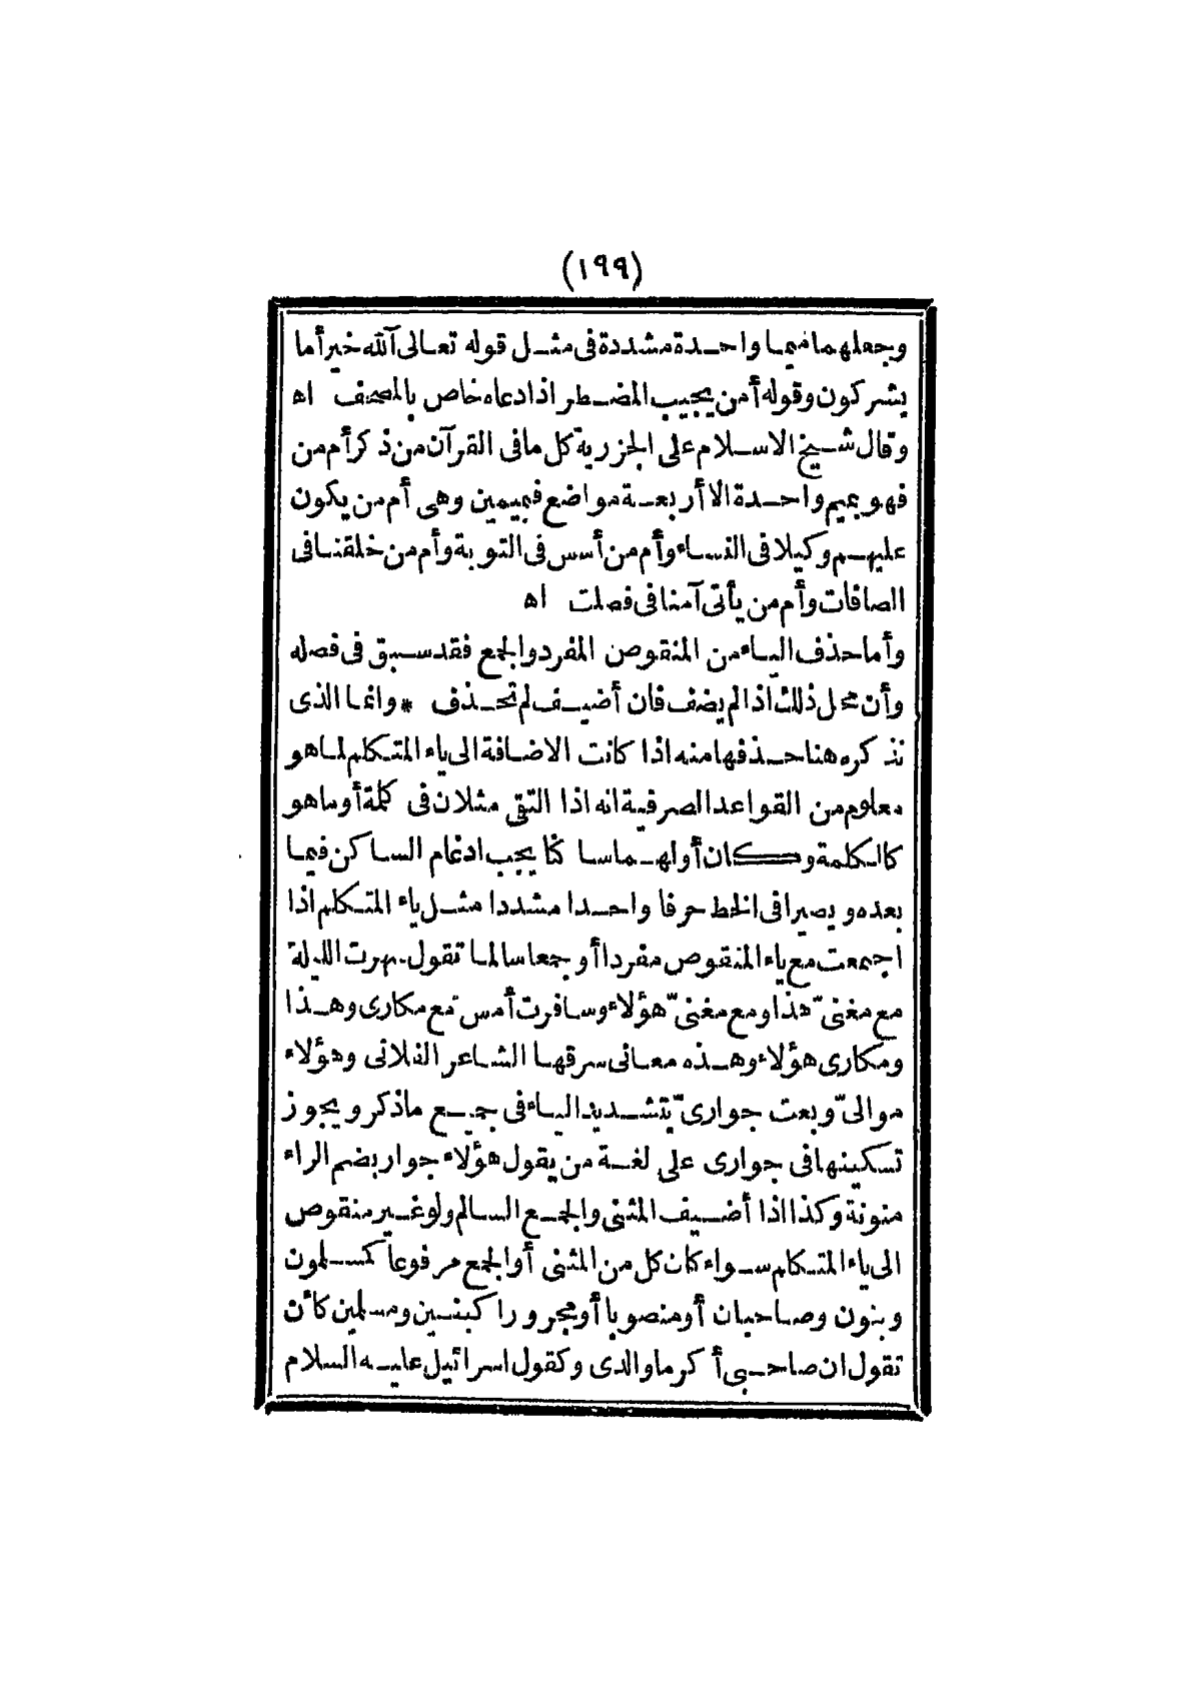 (١٩٩)
وجعلهما ميما واحدة مشددة فى مثل قوله تعالى آلله خير أما
يشركون وقوله أمن يجيب المضطر اذا دعاه خاص بالمصحف اه
وقال شيخ الاسلام على الجزرية كل ما فى القرآن من ذكر أم من
فهو بميم واحدة الا أربعة مواضع فبميمين وهى أم من يكون
عليهم وكيلا فى النساء وأم من أسس فى التوبة وأم من خلقنا فى
الصافات وأم من يأتى آمنا فى فصلت اه
وأما حذف الياء من المنقوص المفرد والجمع فقد سبق فى فصله
وأن محل ذلك اذا لم يضف فان أضيف لم تحذف * وانما الذى
نذكره هنا حذفها منه اذا كانت الاضافة الى ياء المتكلم لما هو
معلوم من القواعد الصرفية انه اذا التقى مثلان فى كلمة أو ما هو
كالكلمة وكان أولهما ساكنا يجب ادغام الساكن فيما
بعده ويصيرا فى الخط حرفا واحدا مشددا مثل ياء المتكلم اذا
اجتمعت مع ياء المنقوص مفردا أو جمعا سالما تقول سهرت الليلة
مع مغنىّ هذا ومع مغنىّ هؤلاء وسافرت أمس مع مكارى وهذا
ومكارى هؤلاء وهذه معانى سرقها الشاعر الفلانى وهؤلاء
موالىّ وبعت جوارىّ بتشديد الياء فى جميع ما ذكر ويجوز
تسكينها فى جوارى على لغة من يقول هؤلاء جوار بضم الراء
منونة وكذا اذا أضيف المثنى والجمع السالم ولو غير منقوص
الى ياء المتكلم سواء كان كل من المثنى أو الجمع مرفوعا كمسلمون
وبنون وصاحبان أو منصوبا أو مجرورا كبنين ومسلمين كأن
تقول ان صاحبى أكرما والدى وكقول اسرائيل عليه السلام